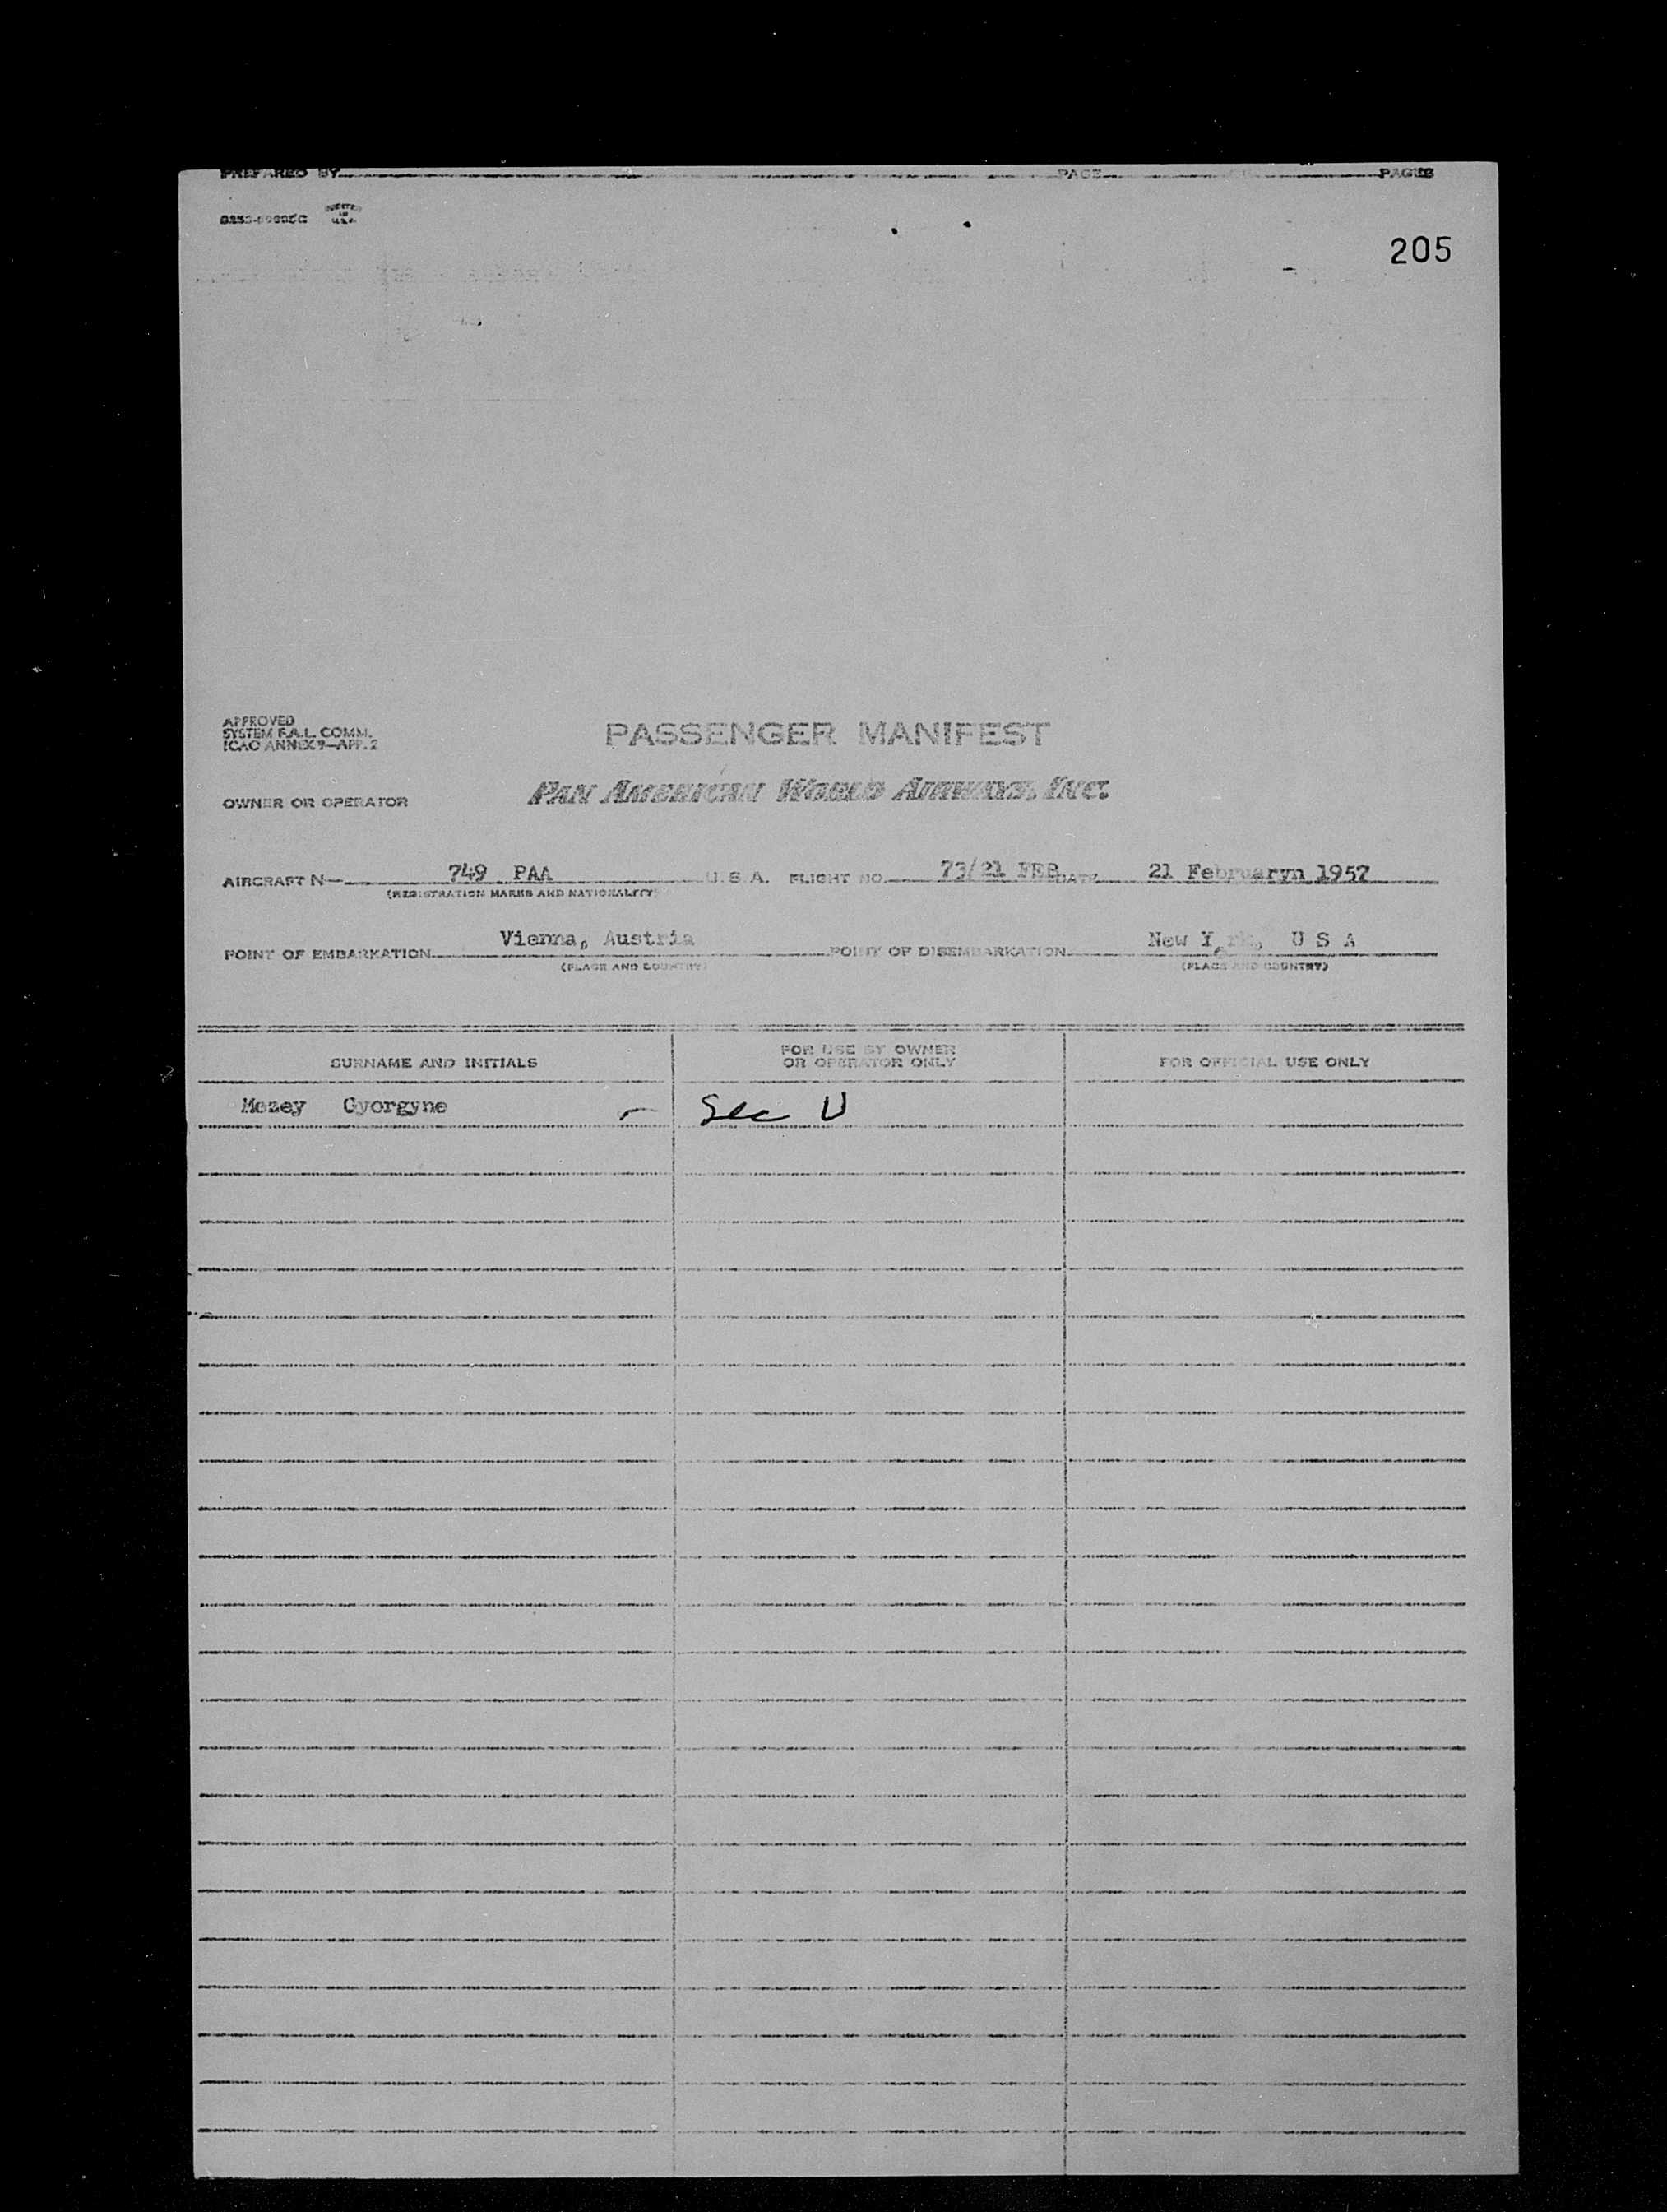 PREPARED BY PAGE PAGES
PRINTED IN U.S.A.
205
APPROVED
SYSTEM F.A.L. COMM.
ICAO ANNEX 9—APP. 2
PASSENGER MANIFEST
OWNER OR OPERATOR PAN AMERICAN WORLD AIRWAYS, INC.
AIRCRAFT N— 749 PAA U. S. A. FLIGHT NO. 73/21 FEB DATE 21 Februaryn 1957
(REGISTRATION MARKS AND NATIONALITY)
POINT OF EMBARKATION Vienna, Austria POINT OF DISEMBARKATION New York, U S A
(PLACE AND COUNTRY) (PLACE AND COUNTRY)
SURNAME AND INITIALS FOR USE BY OWNER OR OPERATOR ONLY FOR OFFICIAL USE ONLY
Mezey Gyorgyne Sec U